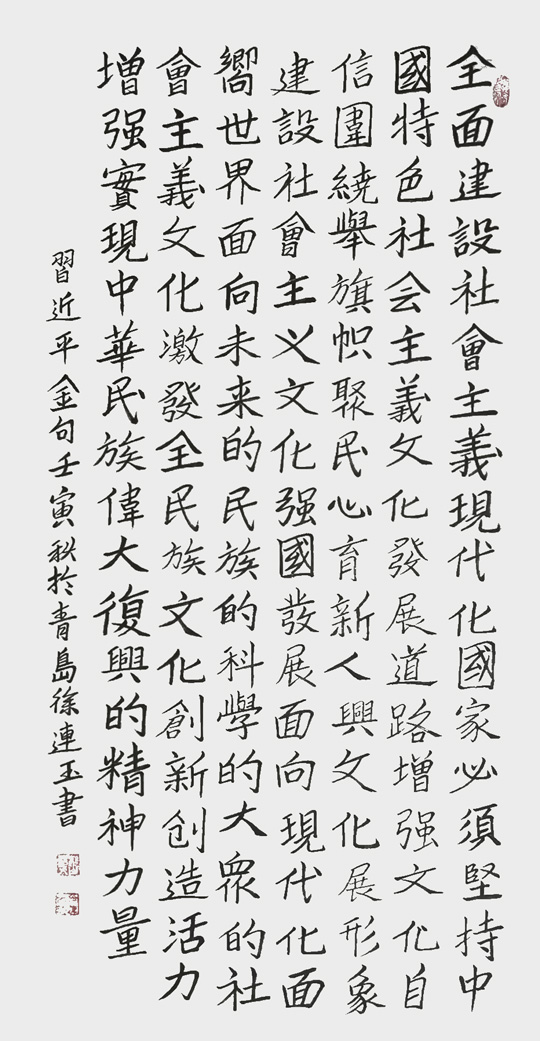 全面建設社會主義現代化國家必須堅持中
國特色社会主義文化發展道路增强文化自
信圍繞舉旗幟聚民心育新人興文化展形象
建設社會主义文化强國發展面向現代化面
嚮世界面向未来的民族的科學的大衆的社
會主義文化激發全民族文化創新创造活力
增强實現中華民族偉大復興的精神力量
習近平金句壬寅秋於青島徐連玉書